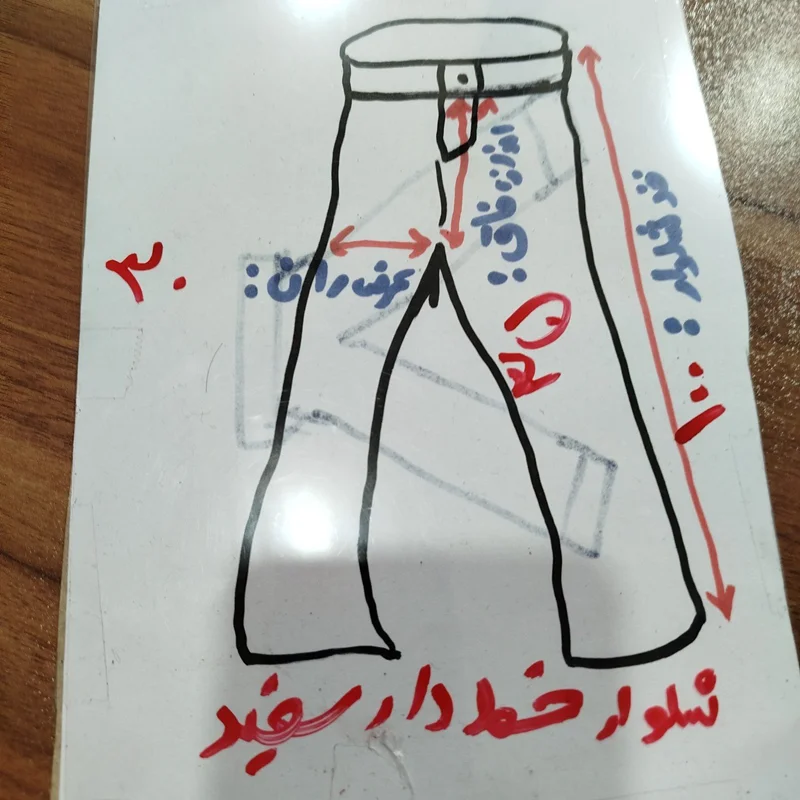 اندازه فاق:
۳۵
قد شلوار: ۱۰۰
عرض ران:
۳۰
شلوار خط دار سفید